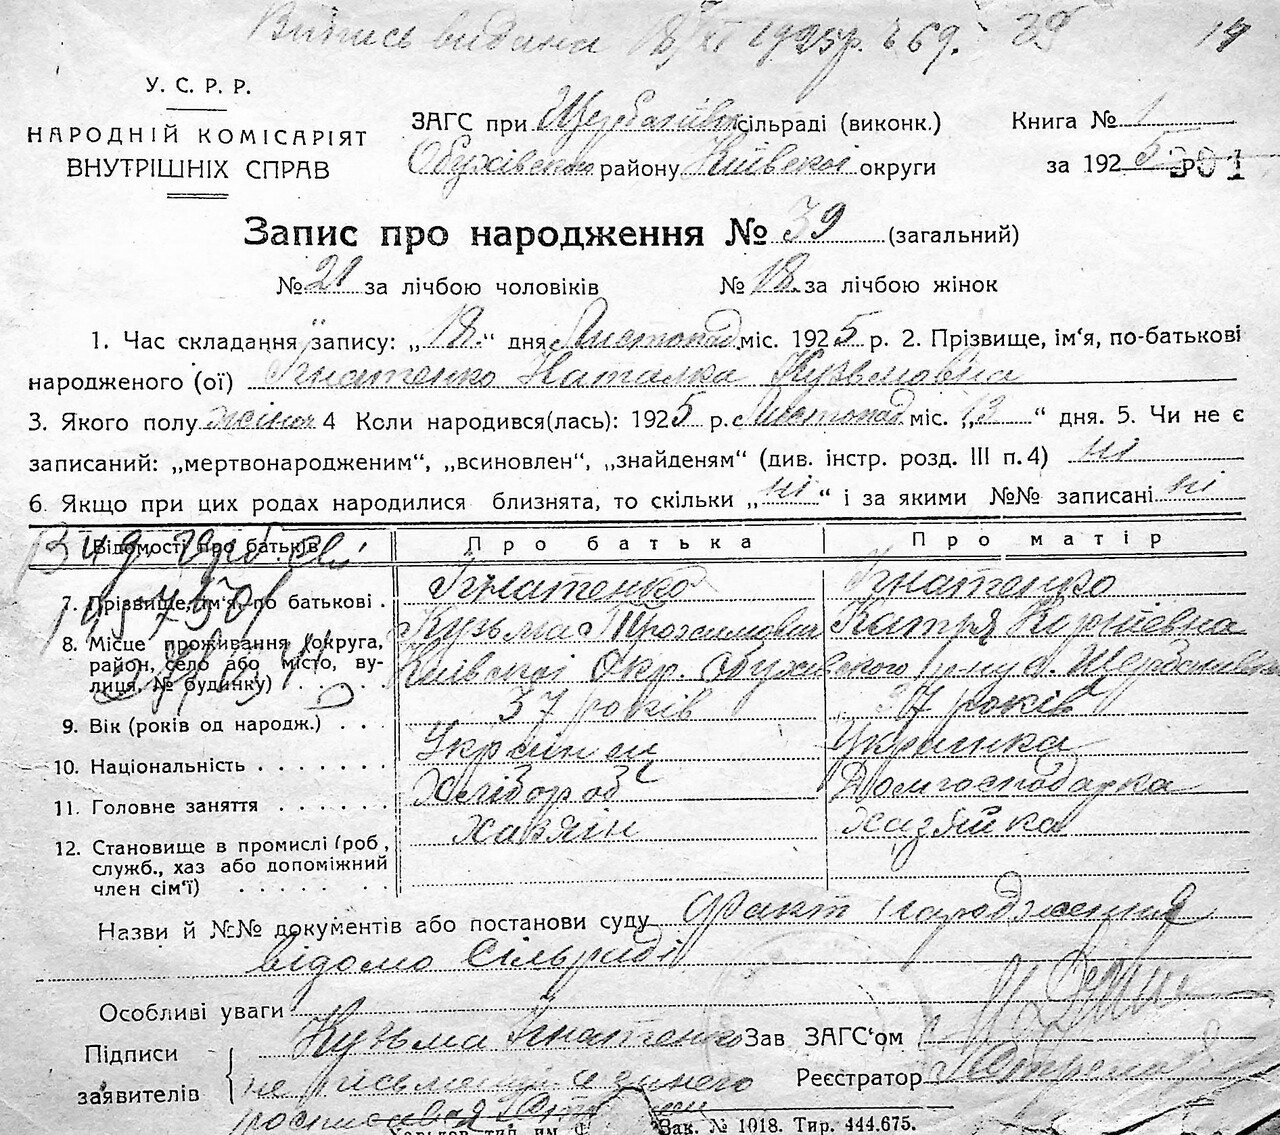 Випись видана 18/XI 1925р. № 69. 39 19
У. С. Р. Р.
НАРОДНІЙ КОМІСАРІЯТ
ВНУТРІШНІХ СПРАВ
ЗАГС при сільраді (виконк.)
Обухівського району Київської округи
Книга № 1
за 1925 р. 301
Запис про народження № 39 (загальний)
№ 21 за лічбою чоловіків № 18 за лічбою жінок
1. Час складання запису: „18“ дня Листопад міс. 1925 р. 2. Прізвище, ім‘я, по-батькові
народженого (ої) Ігнатенко Наталка Кузьмовна
3. Якого полу жіноч 4 Коли народився(лась): 1925 р. Листопад міс. „13“ дня. 5. Чи не є
записаний: „мертвонародженим“, „всиновлен“, „знайденям“ (див. інстр. розд. III п. 4) ні
6. Якщо при цих родах народилися близнята, то скільки „ні“ і за якими №№ записані ні
Відомості про батьків Про батька Про матір
7. Прізвище, ім‘я, по батькові . Ігнатенко Ігнатенко
Кузьма Катря
8. Місце проживання (округа, район, село або місто, вулиця, № будинку) Київської Окр. Обухівського р-ну с.
9. Вік (років од народж.) . . . 37 років 37 років
10. Національність . . . . . . . Українец Українка
11. Головне заняття . . . . . . Хлібороб Домгосподарка
12. Становище в промислі (роб., служб., хаз або допоміжний член сім‘ї) . . . . . Хазяїн Хазяйка
Назви й №№ документів або постанови суду Факт народження
відомо Сільраді
Особливі уваги
Підписи
заявителів
Кузьма Ігнатенко
не письменний а за нього
росписався
Зав ЗАГС‘ом
Реєстратор
Зак. № 1018. Тир. 444.675.